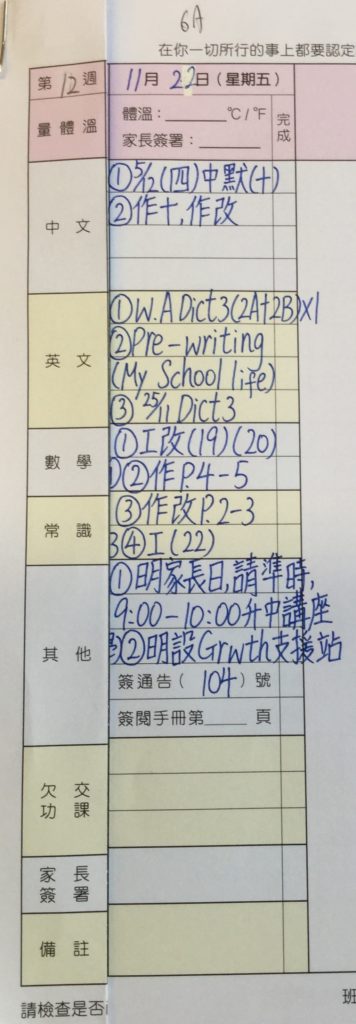 6A
在你一切所行的事上都要認定
第12週 11月22日(星期五)
量體溫 體溫:______℃/℉ 完成
家長簽署:______
中文 ①5/12(四)中默(十)
②作十,作改
英文 ①W.A Dict3(2A+2B)X1
②Pre-writing
(My School life)
③25/11 Dict3
數學 ①工改(19)(20)
②作P.4-5
常識 ③作改P.2-3
④工(22)
其他 ①明家長日,請準時,
9:00-10:00升中講座
②明設Grwth支援站
簽通告(104)號
簽閱手冊第____頁
欠交功課
家長簽署
備註
請檢查是否
班